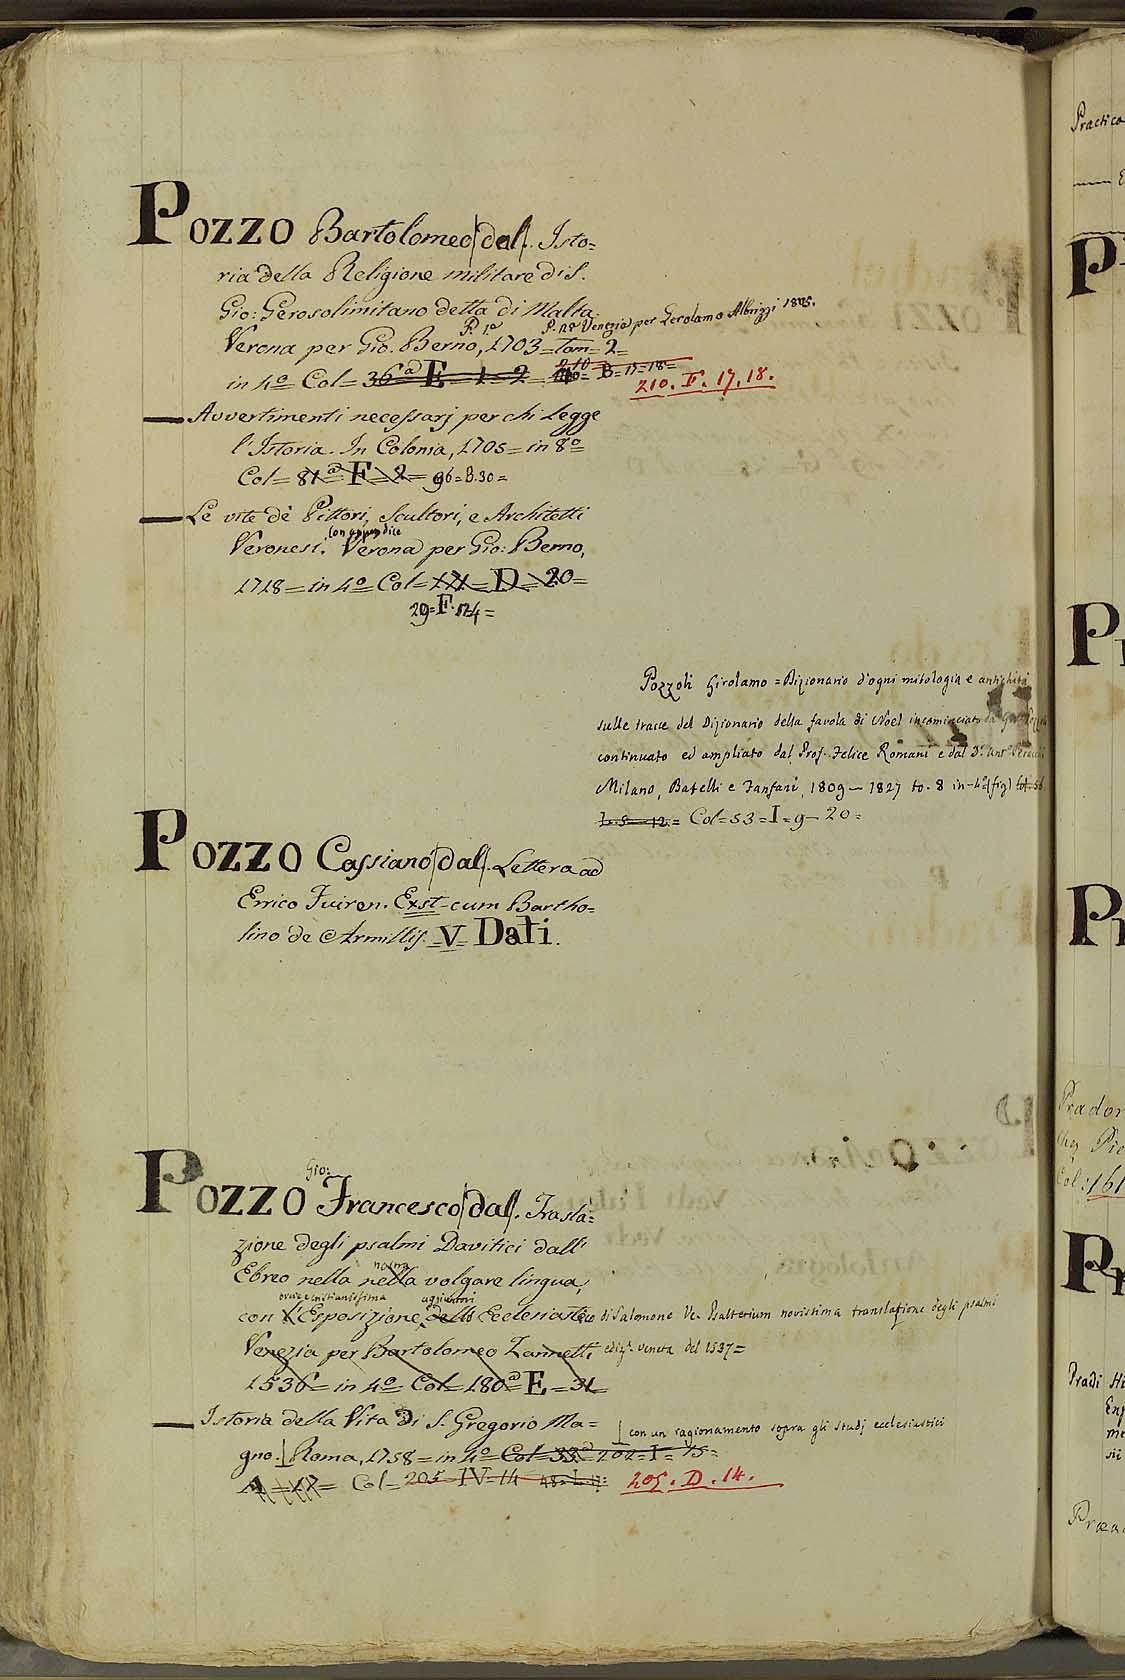 Pozzo Bartolomeo (dal). Isto=
ria della Religione militare di S.
Gio: Gerosolimitano detta di Malta.
P. 1ª P. IIª Venezia per Gerolamo Albrizzi
Verona per Gio. Berno, 1703 = tom = 2 =
in 4º Col = 36ª E = 1 = 2 210 = B = 17 = 18 =
210. F. 17. 18.
— Avvertimenti necessarj per chi legge
l'Istoria. In Colonia, 1705 = in 8º =
Col = 81ª F = 2 = 96 = B. 30 =
— Le vite de' Pittori, Scultori, e Architetti
con appendice
Veronesi. Verona per Gio: Berno,
1718 = in 4º Col = D = 20 =
29 = F. 24 =
Pozzoli Girolamo = Dizionario d'ogni mitologia e antichità
sulle tracce del Dizionario della favola di Noel incominciato da
continuato ed ampliato dal Prof. Felice Romani e dal Dr. Antº
Milano, Batelli e Fanfani, 1809 — 1827 to. 8 in-4º (fig)
Col = 53 = I = 9 — 20 =
Pozzo Cassiano (dal). Lettera ad
Errico Fuiren. Exst cum Bartho=
lino de Armillis. = V = Dati.
Gio:
Pozzo Francesco (dal). Trasla=
zione degli psalmi Davitici dall'
nostra
Ebreo nella nella volgare lingua,
con l'Esposizione dello Ecclesiastico di Salomone Ve. Psalterium novissima translazione degli psalmi
Venezia per Bartolomeo Zannetti ediz. veneta del 1537 =
1536 = in 4º Col = 180ª E = 31 =
— Istoria della Vita di S. Gregorio Ma= | con un ragionamento sopra gli studj ecclesiastici
gno. | Roma, 1758 = in 4º Col = 33ª 202 = I = 15 =
Col = 205 = IV = 14 205. D. 14.
Practica
P
P
P
Prador
Col: 161
P
Pradi